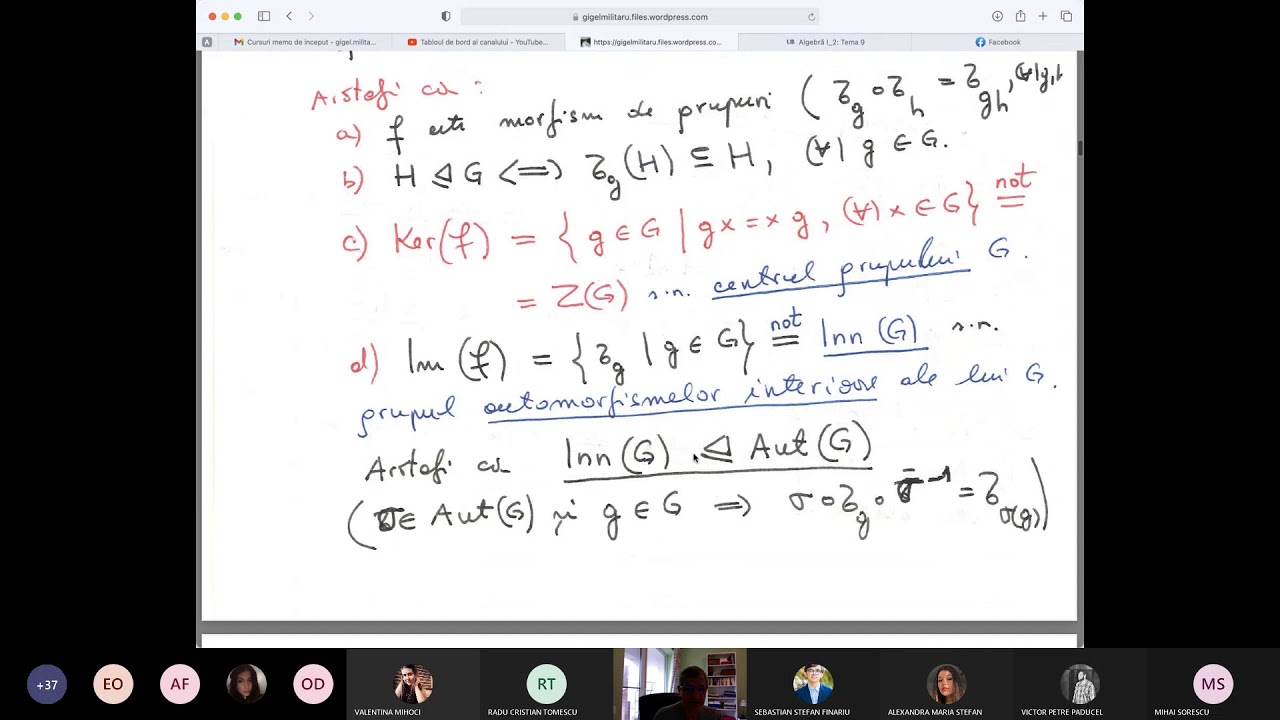 gigelmilitaru.files.wordpress.com
A
Cursuri memo de inceput - gigel.milita...
Tabloul de bord al canalului - YouTube...
https://gigelmilitaru.files.wordpress.co...
UB Algebră I_2: Tema 9
Facebook
Arătați că :
a) f este morfism de grupuri ( τ_g ∘ τ_h = τ_gh , (∀) g,
b) H ⊴ G <=> τ_g (H) ⊆ H, (∀) g ∈ G.
c) Ker(f) = { g ∈ G | gx = xg, (∀) x ∈ G} not =
= Z(G) s.n. centrul grupului G.
d) Im (f) = { τ_g | g ∈ G} not = Inn (G) s.n.
grupul automorfismelor interioare ale lui G.
Arătați că Inn (G) ⊴ Aut (G)
( σ ∈ Aut (G) și g ∈ G => σ ∘ τ_g ∘ σ^-1 = τ_σ(g) )
+37
EO
AF
OD
VALENTINA MIHOCI
RT
RADU CRISTIAN TOMESCU
SEBASTIAN STEFAN FINARIU
ALEXANDRA MARIA STEFAN
VICTOR PETRE PADUCEL
MS
MIHAI SORESCU